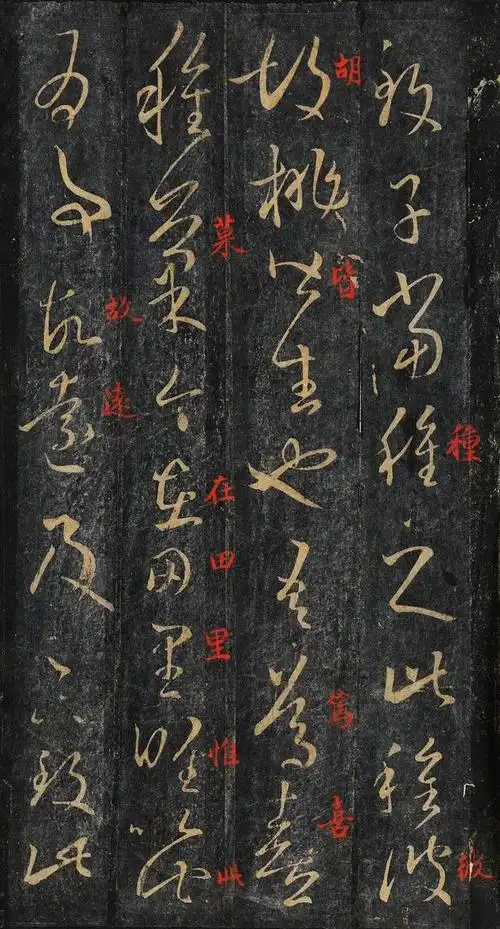 致子當種之此種彼
種
胡桃皆生也吾篤喜
胡皆篤喜
種菓今在田里惟以此
菓在田里惟此
為事故遠及足下致此
故遠